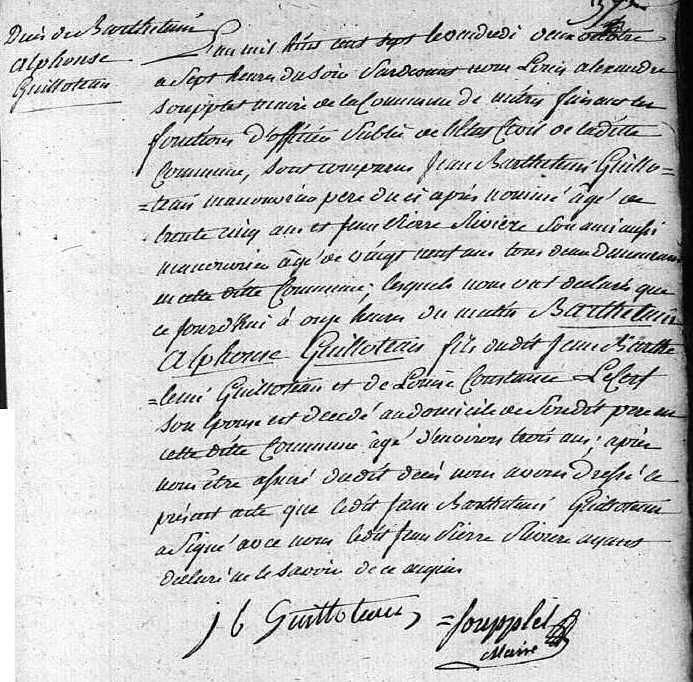 Décès de Barthelemi
Alphonse
Guilloteau
L'an mil huit cent sept le vendredi deux octobre
a sept heures du soir pardevant nous Louis alexandre
Soupplet maire de la Commune de faisant les
fonctions d'officier Public de l'Etat Civil de laditte
Commune, sont comparus Jean Barthelemi Guillo=
=teau manouvrier pere du ci après nommé âgé de
trente cinq ans et Jean Pierre Riviere Son ami aussi
manouvrier âgé de vingt neuf ans tous deux demeurans
en cette ditte Commune; lesquels nous ont declaré que
ce jourd'hui à onze heures du matin Barthelemi
Alphonse Guilloteau fils dudit Jean Barthe
=lemi Guilloteau et de Louise Constance Lecerf
son Epouse est decedé au domicile de Sondit pere en
cette ditte Commune âgé d'environ trois ans; après
nous être assuré dudit decès nous avons Dressé le
présent acte que ledit Jean Barthelemi Guilloteau
a Signé avec nous ledit Jean Pierre Riviere ayant
declaré ne le savoir de ce enquis
j b Guilloteau = Soupplet
Maire